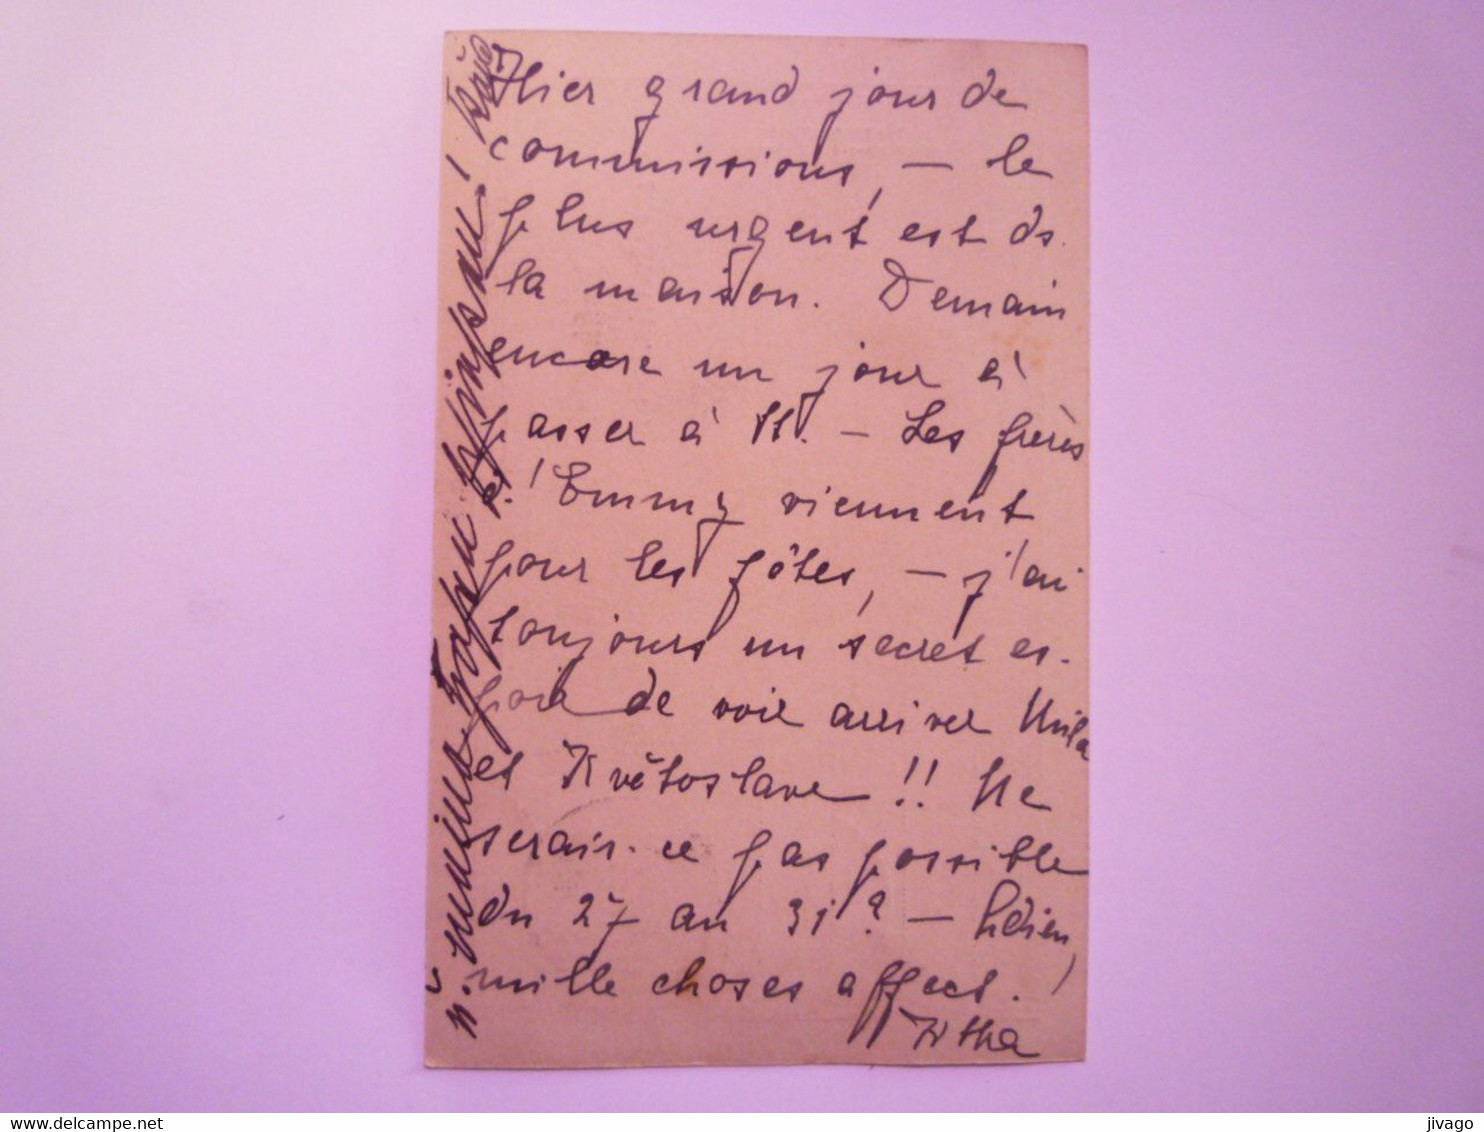 Hier grand jour de
commissions, — le
plus urgent est ds.
la maison. Demain
encore un jour à
passer à H. — Les frères
d'Emmy viennent
pour les fêtes, — j'ai
toujours un secret es-
poir de voir arriver Mila
et Květoslave !! Ne
serait-ce pas possible
du 27 au 31? —
mille choses affect.
delcampe.net
jivago